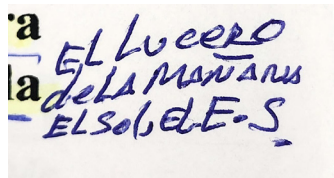 ra
EL LUceRO
la
deLA MAÑANA
ELSol, dLE.S.